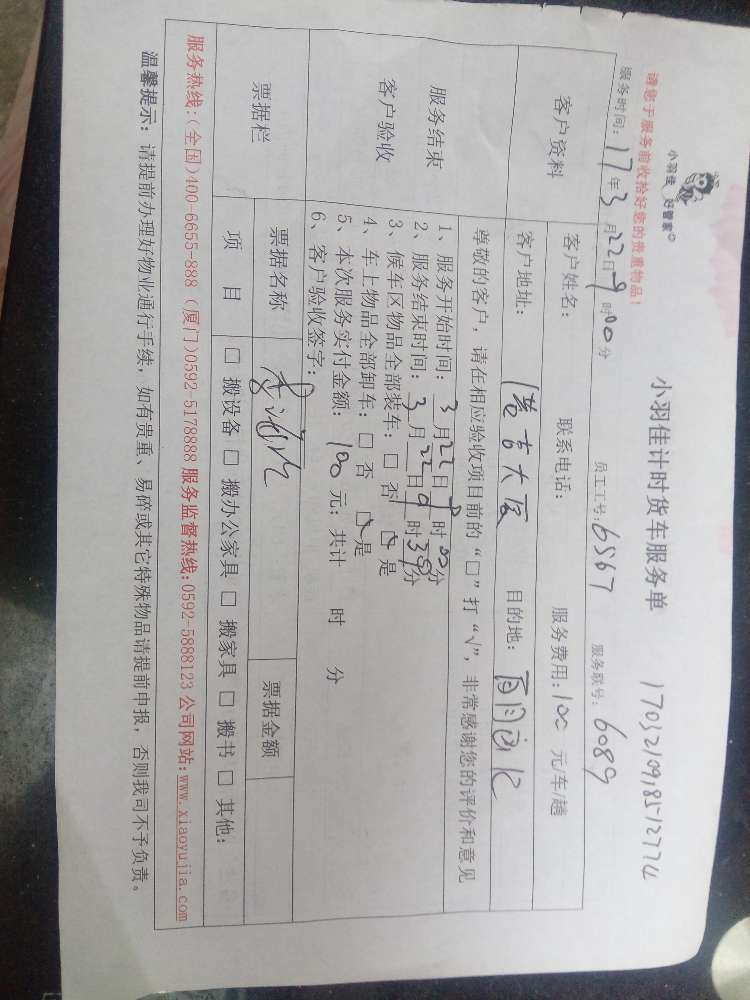 小羽佳 好管家
小羽佳计时货车服务单 17032109185127774
请您于服务前收拾好您的贵重物品!
服务时间: 17年3月22日9时00分 员工工号: 6567 服务联号: 6089
客户资料
客户姓名: 联系电话: 服务费用: 100 元/车/趟
客户地址: 大厦 目的地:
服务结束
客户验收
尊敬的客户, 请在相应验收项目前的“□”打“√”, 非常感谢您的评价和意见
1、服务开始时间: 3月22日9时00分
2、服务结束时间: 3月22日9时39分
3、候车区物品全部装车: □ 否 □ 是
4、车上物品全部卸车: □ 否 □ 是
5、本次服务实付金额: 100 元; 共计 时 分
6、客户验收签字:
票据栏
票据名称 票据金额
项 目 □ 搬设备 □ 搬办公家具 □ 搬家具 □ 搬书 □ 其他:
服务热线:(全国)400-6655-888 (厦门)0592-5178888 服务监督热线:0592-5888123 公司网站:www.xiaoyujia.com
温馨提示: 请提前办理好物业通行手续, 如有贵重、易碎或其它特殊物品请提前申报, 否则我司不予负责。